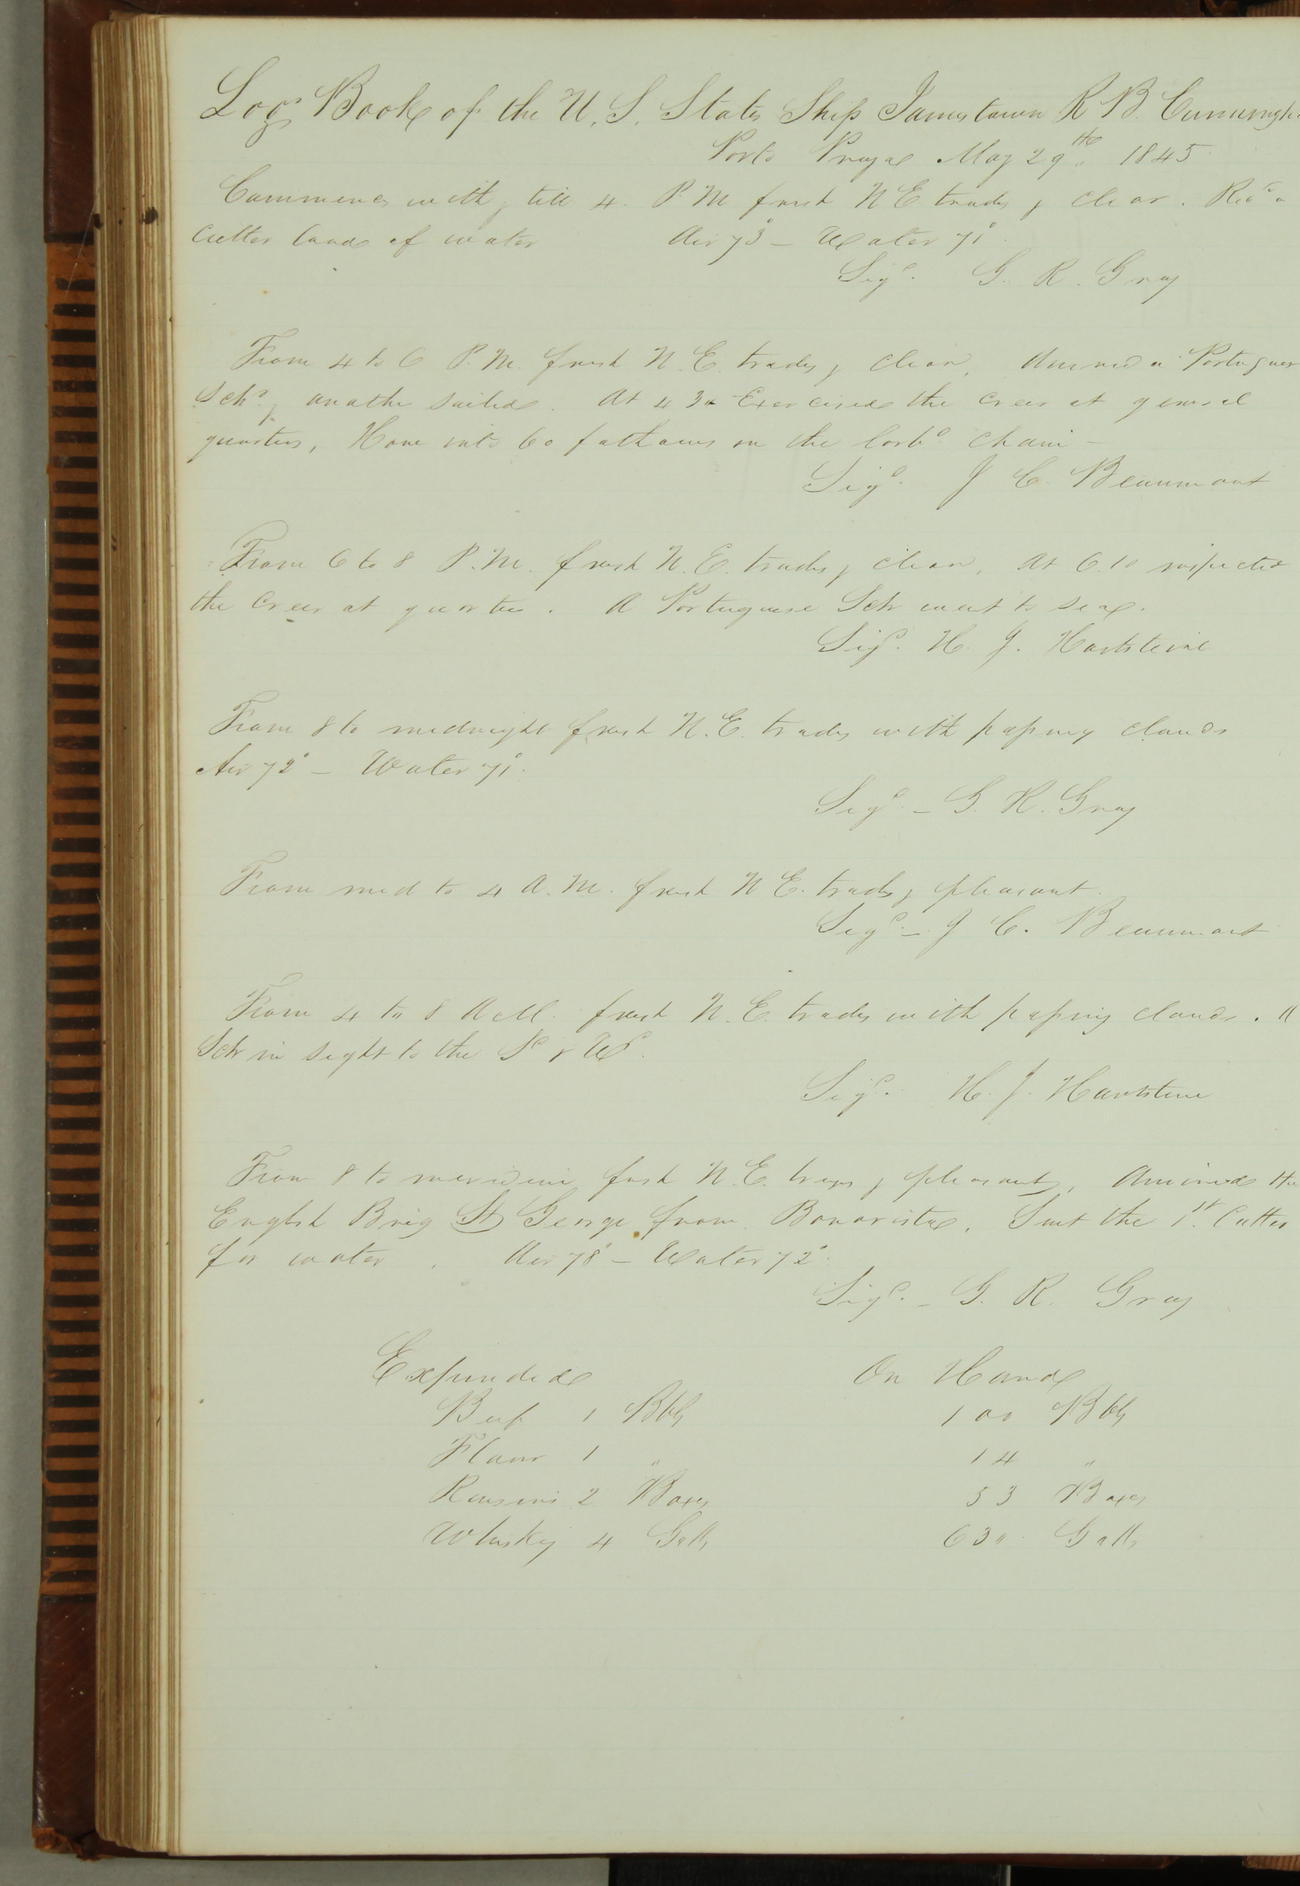 Log Book of the U. S. States Ship Jamestown R B. Cunningh
Porto Praya May 29th 1845
Commences with, till 4. P M fresh N E trades, clear. Recd a
Cutter load of water Air 73° – Water 71°
Sigd. G. R. Gray
From 4 to 6 P. M. fresh N. E. trades, clear, Arrived a Portuguese
Schr, another sailed. At 4 30 Exercised the crew at general
quarters, Hove into 60 fathoms on the larbd chain –
Sigd. J C. Beaumont
From 6 to 8 P. M. fresh N. E. trades, clear, At 6.10 inspected
the crew at quarters. A Portuguese Schr went to sea.
Sigd. H. J. Hartstene
From 8 to midnight fresh N. E. trades with passing clouds
Air 72° – Water 71°.
Sigd. – G. R. Gray
From mid to 4 A. M. fresh N E. trades, pleasant.
Sigd. – J C. Beaumont
From 4 to 8 A M. fresh N. E. trades with passing clouds. A
Schr in sight to the Sd & Wd.
Sigd. H. J. Hartstene
From 8 to meridian, fresh N. E. trades, pleasant, Arrived the
English Brig St George from Bonavista. Sent the 1st Cutter
for water. Air 78° – Water 72°.
Sigd. – G. R. Gray
Expended On Hand
Beef 1 Bbls 100 Bbls
Flour 1 " 14 "
Reasins 2 Boxes 53 Boxes
Whisky 4 Galls 630 Galls